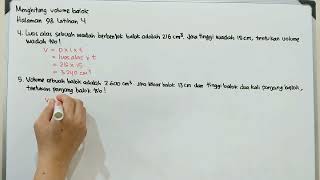 Menghitung volume balok
Halaman 98 Latihan 4
4. Luas alas sebuah wadah berbentuk balok adalah 216 cm². Jika tinggi wadah 15 cm, tentukan volume
wadah itu!
V = p x l x t
= luas alas x t
= 216 x 15
= 3.240 cm³
5. Volume sebuah balok adalah 2.600 cm³. Jika lebar balok 13 cm dan tinggi balok dua kali panjang balok,
tentukan panjang balok itu!
V